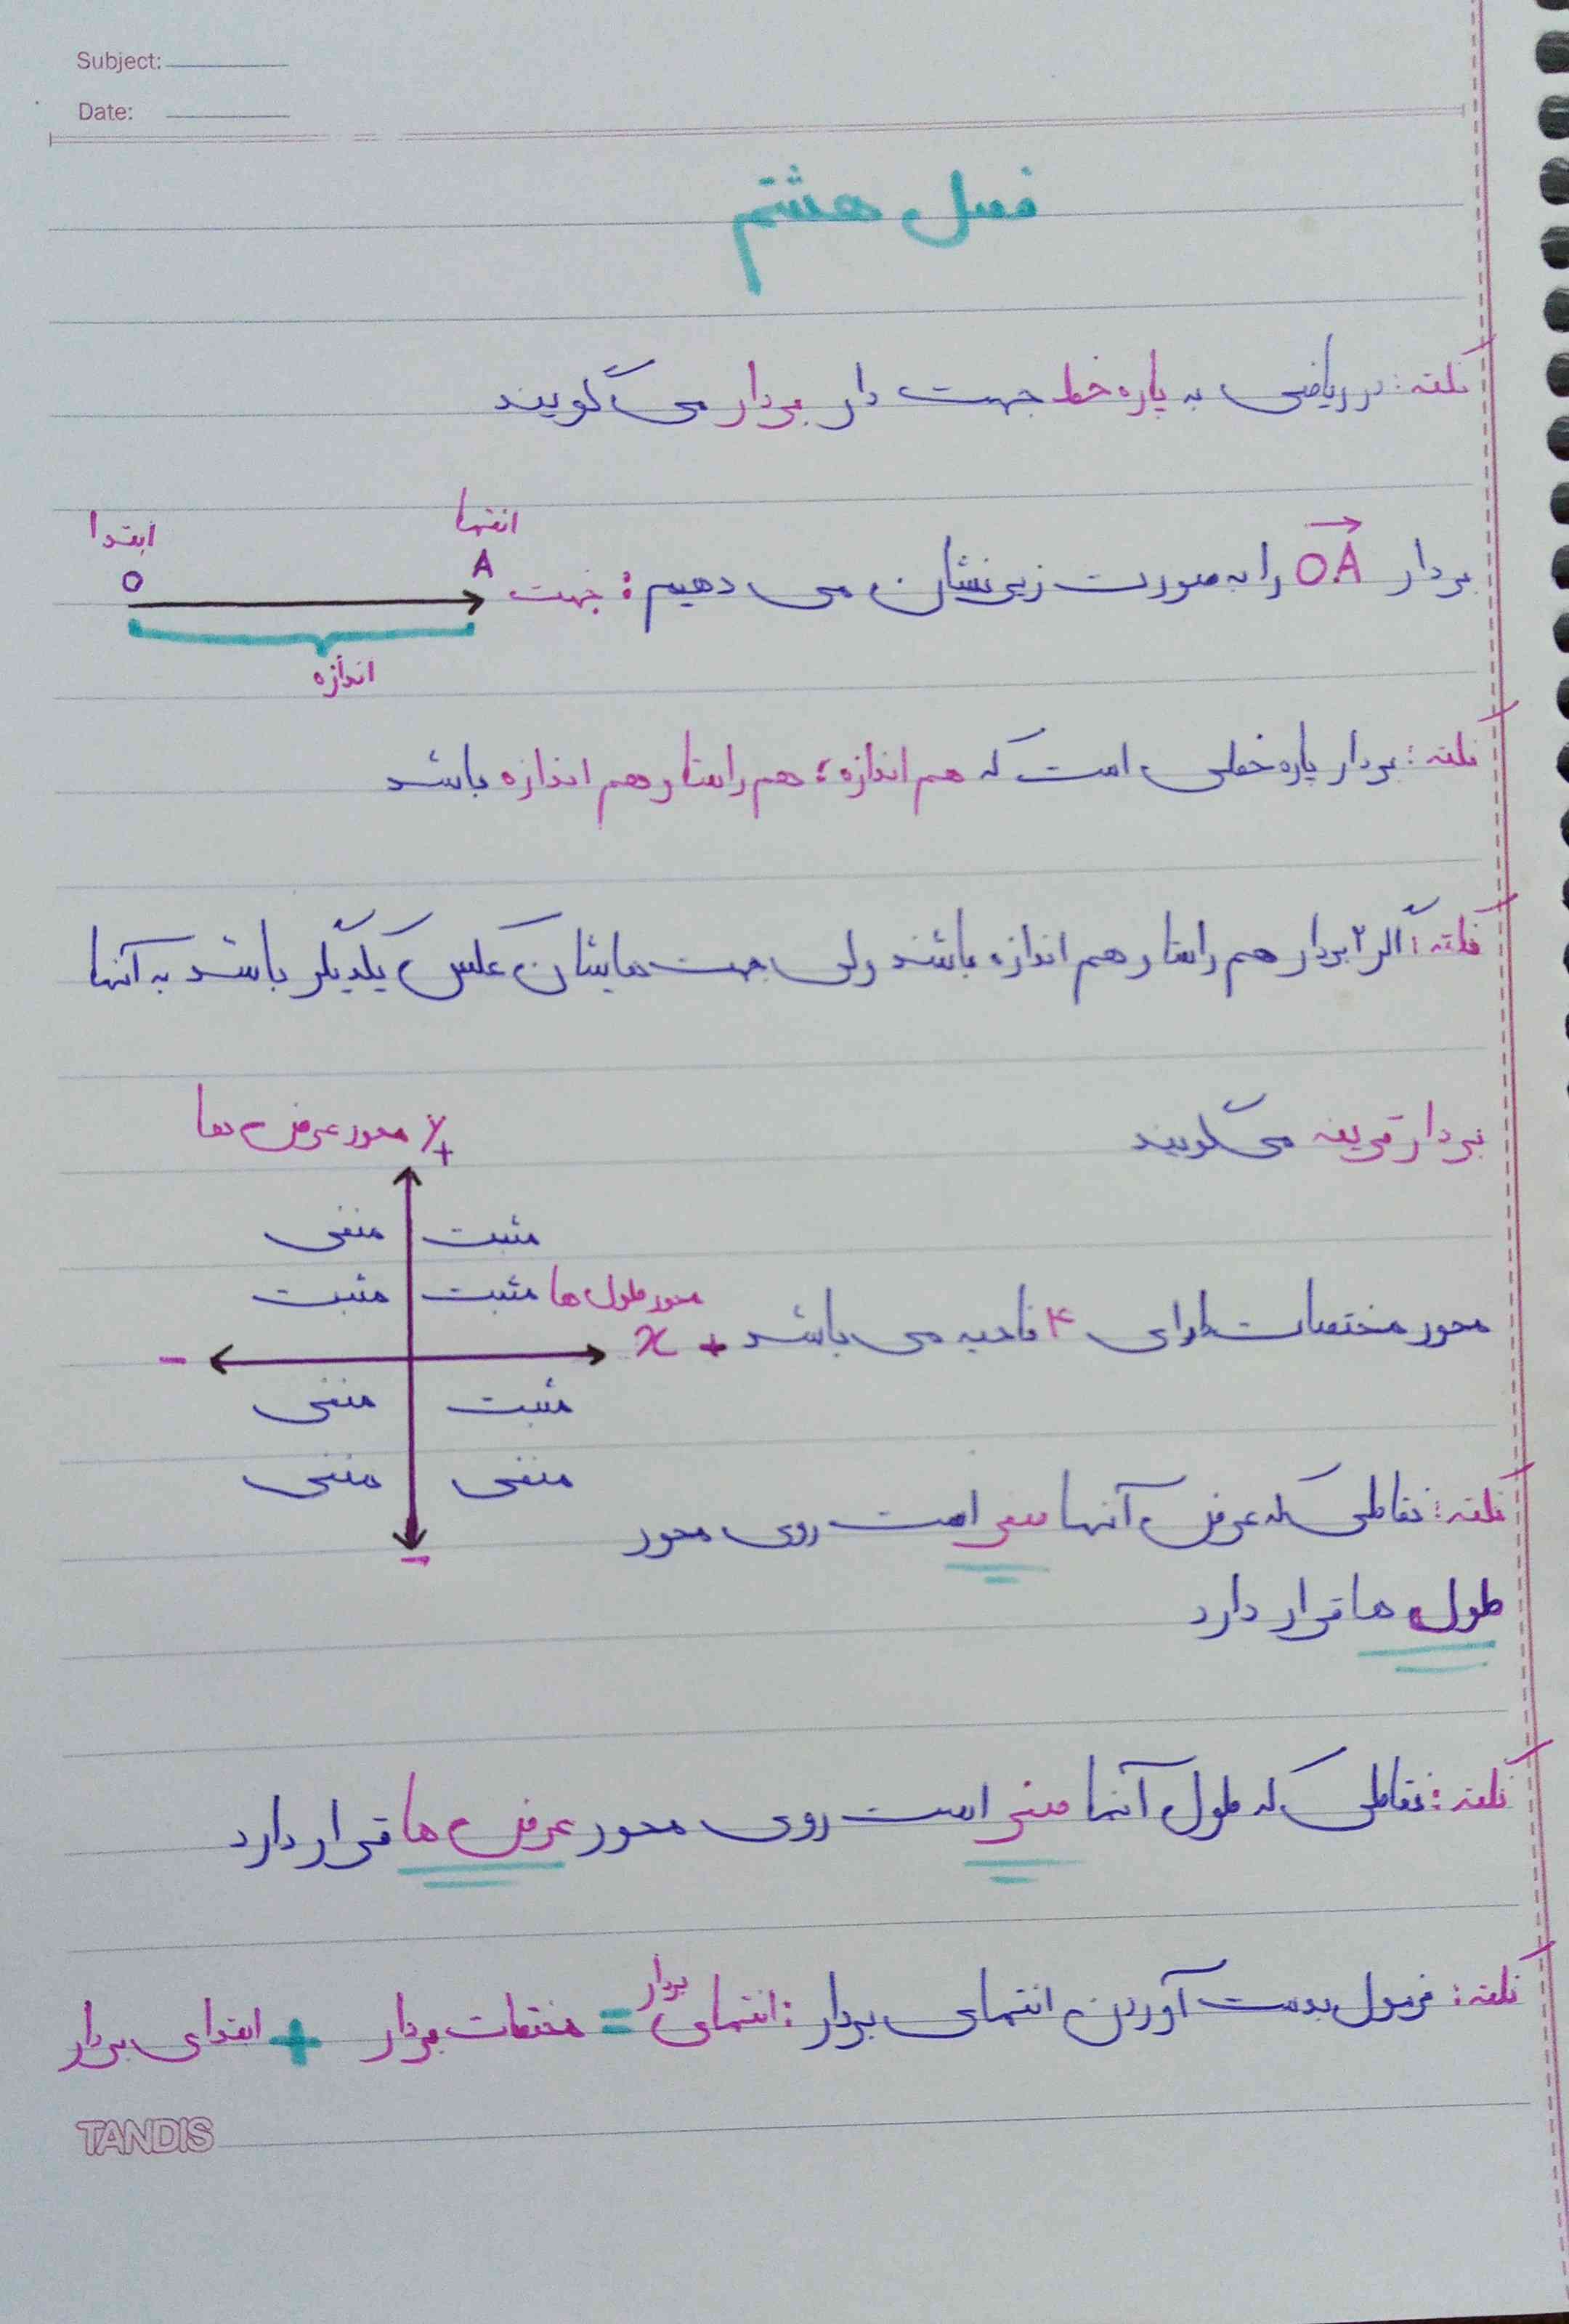 Subject:
Date:
فصل هشتم
نکته: در ریاضی به پاره خط جهت دار بردار می گویند
ابتدا انتها
O A
بردار OA را به صورت زیر نشان می دهیم: جهت
اندازه
نکته: بردار پاره خطی است که هم اندازه؛ هم راستا و هم اندازه باشد
نکته: اگر ۲ بردار هم راستا و هم اندازه باشند ولی جهت هایشان عکس یکدیگر باشد به آنها
بردار قرینه می گویند
y محور عرض ها
+
منفی مثبت
مثبت مثبت محور طول ها
محور مختصات دارای ۴ ناحیه می باشد
- x +
منفی مثبت
منفی منفی
-
نکته: نقاطی که عرض آنها است روی محور
طول ها قرار دارد
نکته: نقاطی که طول آنها است روی محور عرض ها قرار دارد
نکته: فرمول بدست آوردن انتهای بردار: انتهای بردار = مختصات بردار + ابتدای بردار
TANDIS